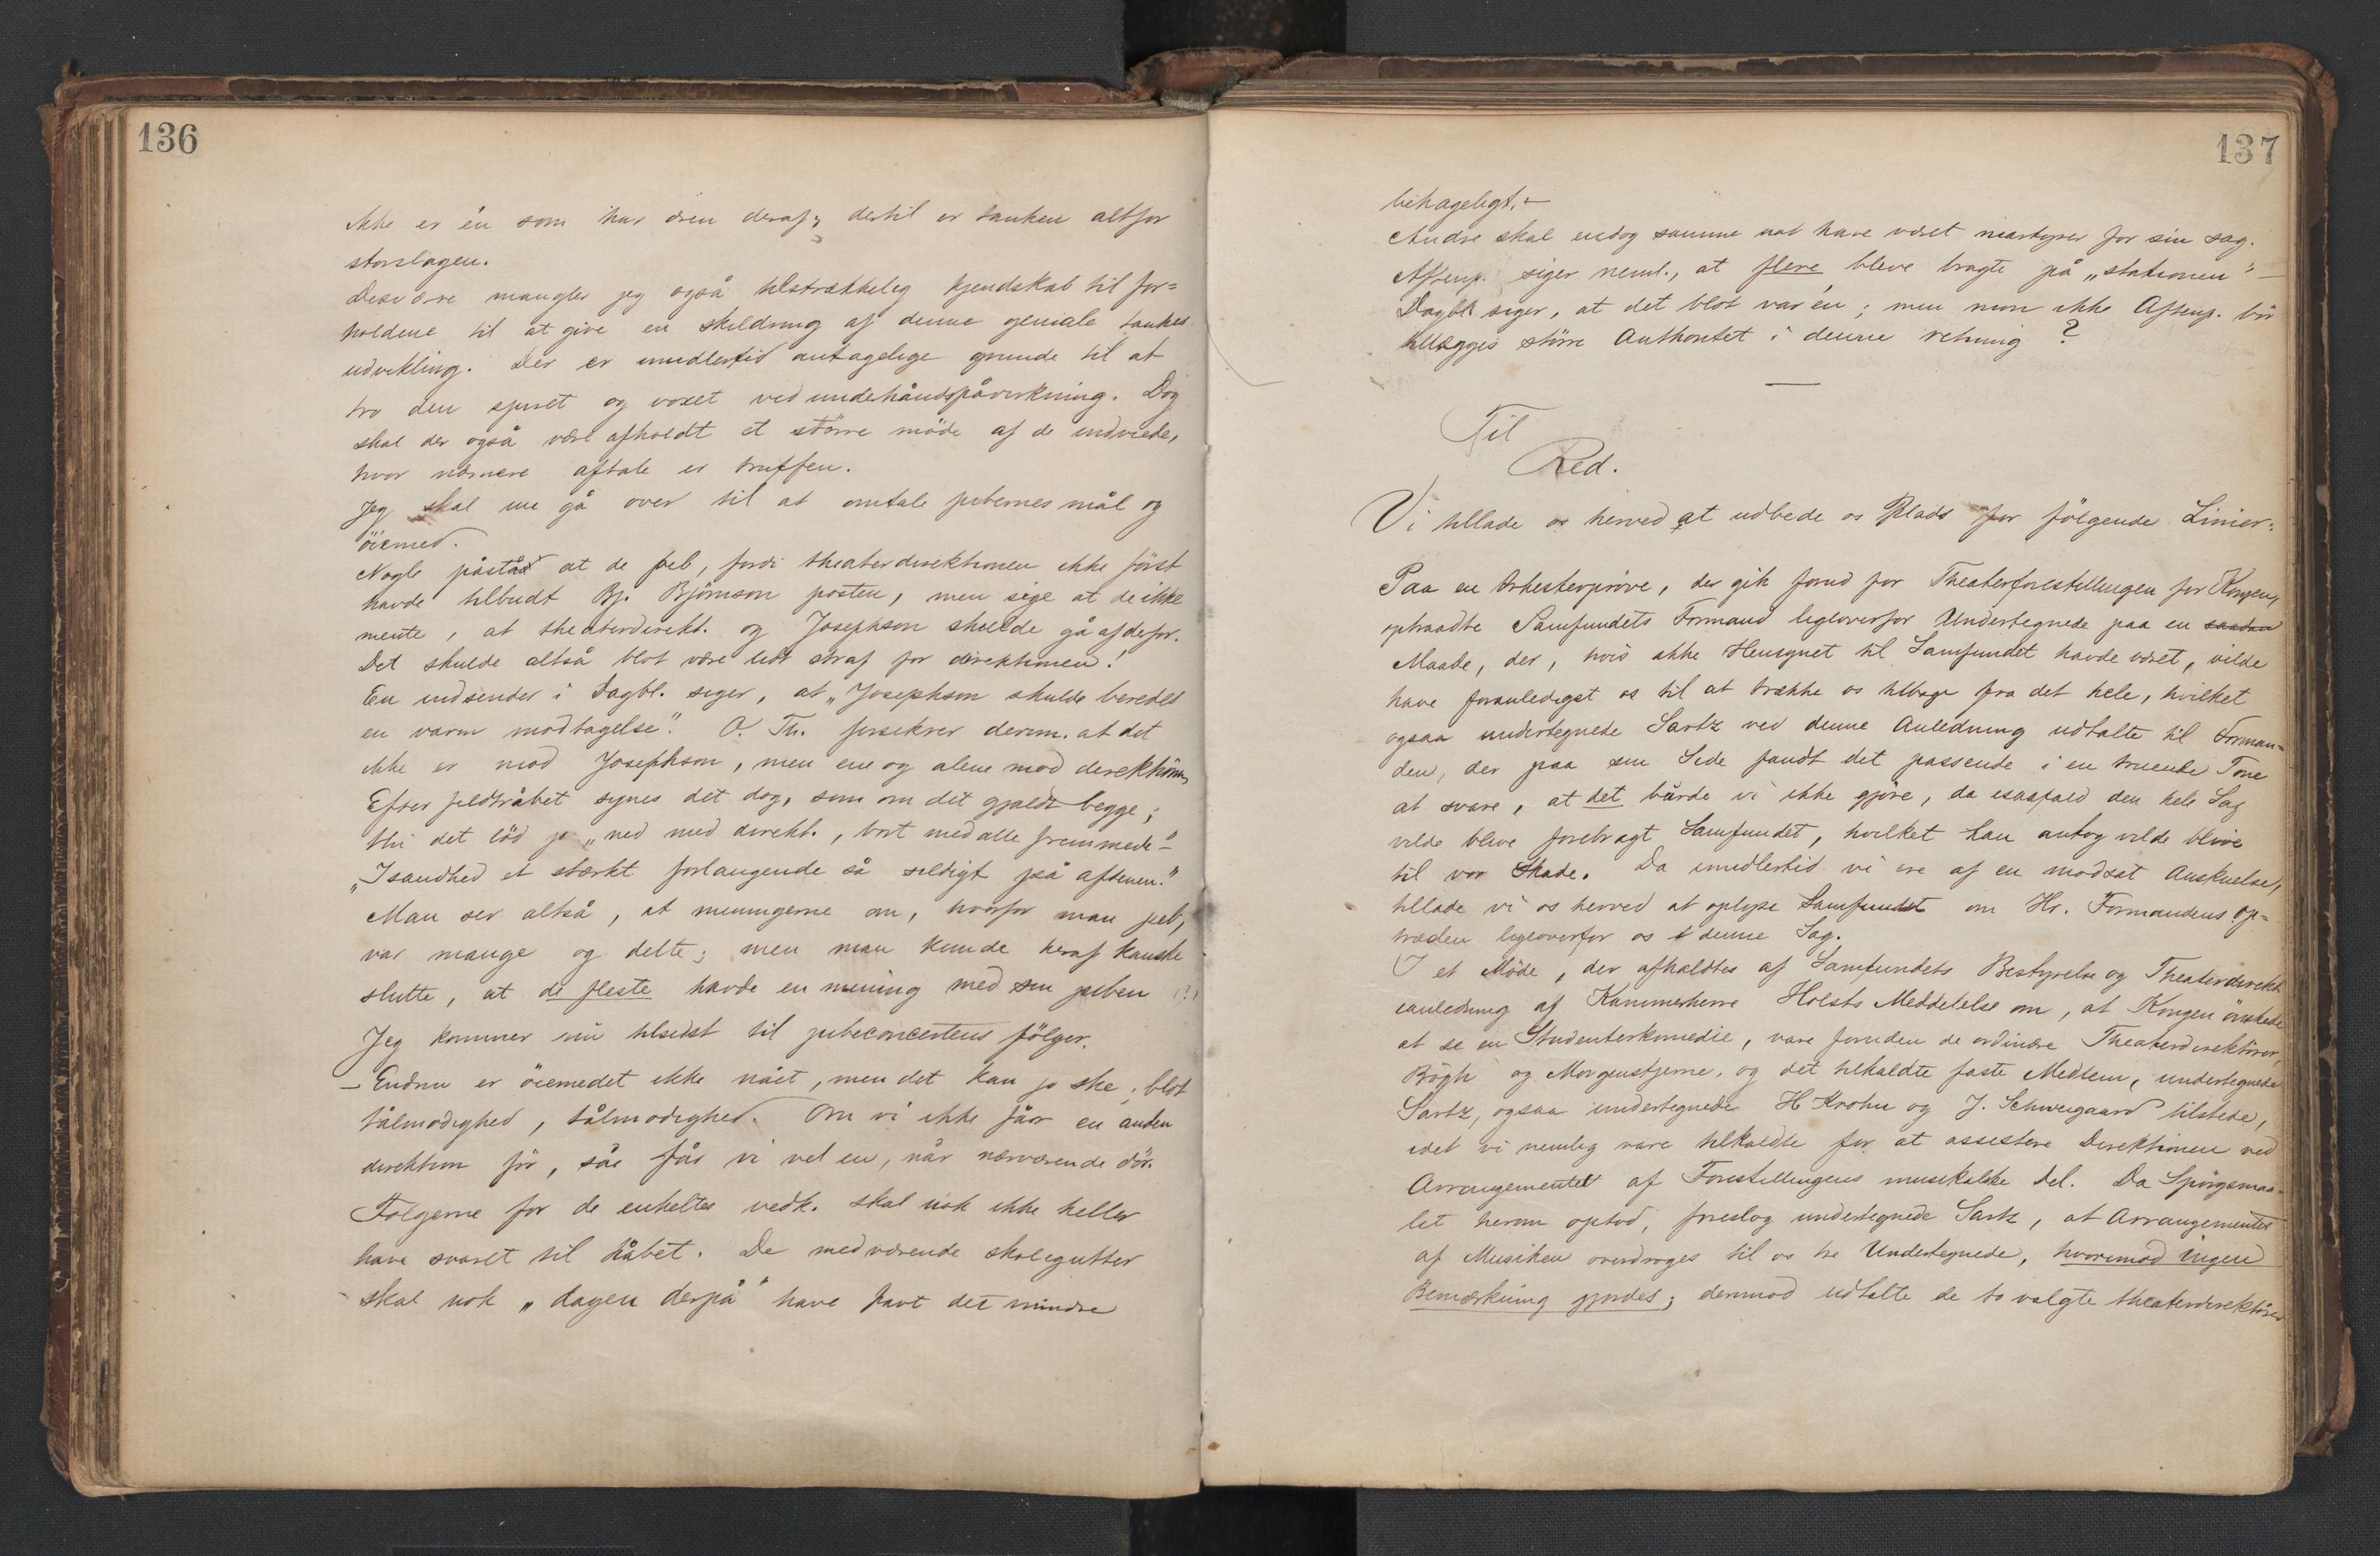 136
ikke er én som har æren deraf; dertil er tanken altfor
storslagen.
Desværre mangler jeg også tilstrækkelig kjendskab til for=
holdene til at give en skildring af denne geniale tankes
udvikling. Der er imidlertid antagelige grunde til at
tro den spiret og voxet ved underhåndspåvirkning. Dog
skal der også være afholdt et større møde af de indviede,
hvor nærmere aftale er truffen.
Jeg skal nu gå over til at omtale pibernes mål og
öiemed.
Nogle påstår at de peb, fordi theaterdirektionen ikke först
havde tilbudt Bj. Björnson posten, men sige at de ikke
mente, at theaterdirekt. og Josephson skulde gå af derfor.
Det skulde altså blot være lidt straf for direktionen!
En indsender i Dagbl. siger, at „Josephson skulde beredes
en varm modtagelse". O. Th. forsikrer derim. at det
ikke er mod Josephson, men ene og alene mod direktionen
Efter feldtråbet synes det dog, som om det gjaldt begge;
thi det löd jo „ned med direkt., bort med alle fremmede"-
„Isandhed et stærkt forlangende så sildigt på aftenen."
Man ser altså, at meningerne om, hvorfor man peb,
var mange og delte; men man kunde heraf kanske
slutte, at de fleste havde en mening med sin piben (?)
Jeg kommer nu tilsidst til pibeconcertens fölger.
– Endnu er öiemedet ikke nået, men det kan jo ske; blot
tålmodighed, tålmodighed. Om vi ikke får en anden
direktion för, så får vi vel en, når nærværende dör.
Fölgerne for de enkeltes vedk. skal nok ikke heller
have svaret til håbet. De medværende skolegutter
skal nok „dagen derpå" have havt det mindre
137
behageligt. –
Andre skal endog samme nat have været martyrer for sin sag.
Aftenp. siger neml., at flere bleve bragte på „stationen" –
Dagbl. siger, at det blot var én; men mon ikke Aftenp. bör
tillægges större Authoritet i denne retning?
Til
Red.
Vi tillade os herved at udbede os Plads for fölgende Linier:
Paa en Orkesterpröve, der gik forud for Theaterforestillingen for Kongen,
optraadte Samfundets Formand ligeoverfor Undertegnede paa en saadan
Maade, der, hvis ikke Hensynet til Samfundet havde været, vilde
have foranlediget os til at trække os tilbage fra det hele, hvilket
ogsaa undertegnede Sartz ved denne Anledning udtalte til Forman=
den, der paa sin Side fandt det passende i en truende Tone
at svare, at det burde vi ikke gjöre, da isaafald den hele Sag
vilde blive forebragt Samfundet, hvilket han antog vilde blive
til vor Skade. Da imidlertid vi ere af en modsat Anskuelse,
tillade vi os herved at oplyse Samfundet om Hr. Formandens Op=
træden ligeoverfor os i denne Sag.
I et Möde, der afholdtes af Samfundets Bestyrelse og Theaterdirekt.
ianledning af Kammerherre Holsts Meddelelse om, at Kongen önskede
at se en Studenterkomedie, vare foruden de ordinære Theaterdirektörer,
Bögh og Morgenstjerne, og det tilkaldte faste Medlem, undertegnede
Sartz, ogsaa undertegnede H Krohn og J. Schweigaard tilstede,
idet vi nemlig vare tilkaldte for at assistere Direktionen ved
Arrangementet af Forestillingens musikalske Del. Da Spörgsmaa=
let herom opstod, foreslog undertegnede Sartz, at Arrangementet
af Musiken overdroges til os tre Undertegnede, hvorimod ingen
Bemærkning gjordes; derimod udtalte de to valgte theaterdirektörer